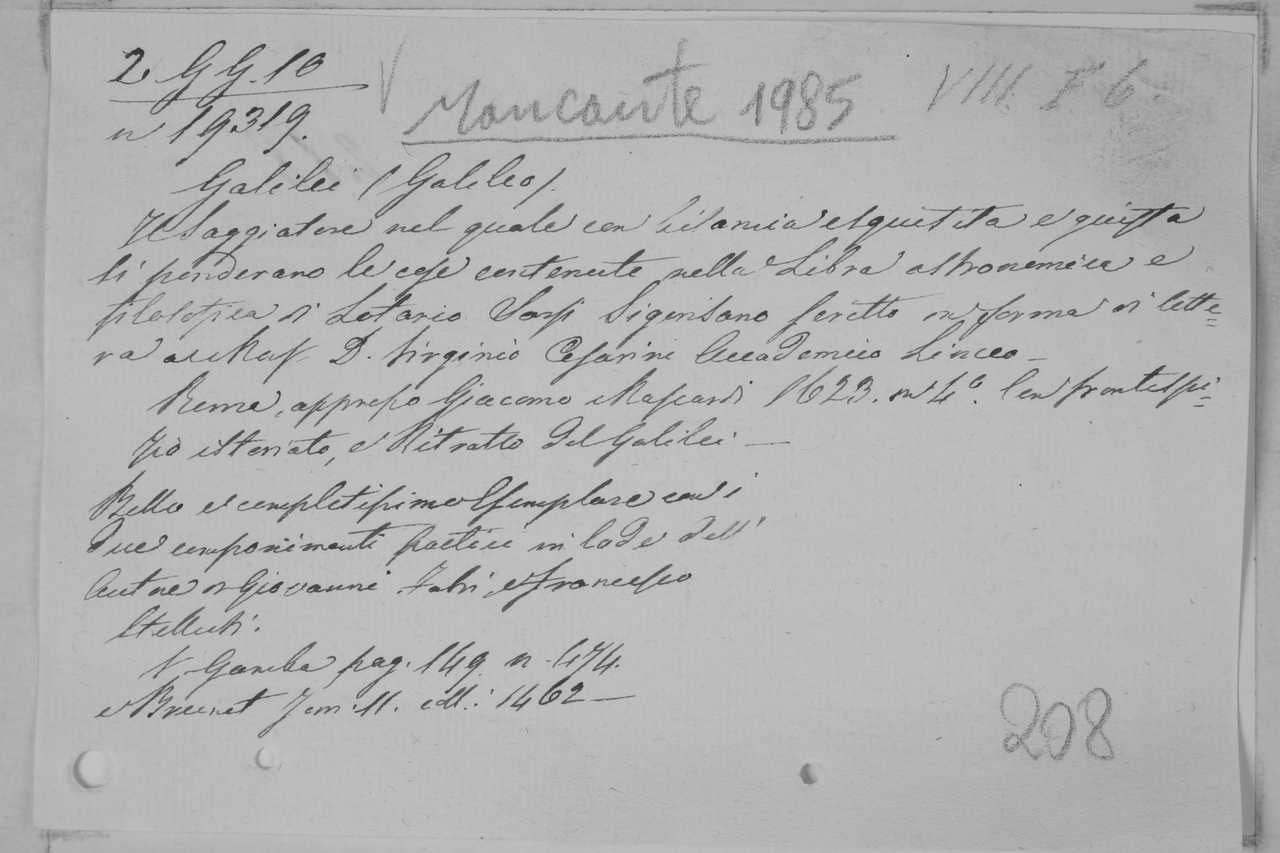 2 GG. 10
n 19319.
V Mancante 1985
VIII. F 6.
Galilei (Galileo).
Il Saggiatore nel quale con bilancia esquisita e giusta
si ponderano le cose contenute nella Libra astronomica e
filosofica di Lotario Sarsi Sigensano scritto in forma di lette=
ra al R. D. Virginio Cesarini Accademico Linceo —
Roma, appresso Giacomo Mascardi 1623. in 4°. Con frontespi=
zio istoriato, e Ritratto del Galilei —
Bello e completissimo Esemplare con i
due componimenti Poetici in lode dell'
Autore di Giovanni Fabri, e Francesco
Stelluti.
V. Gamba pag. 149. n. 474.
e Brunet Tom: II. coll: 1462 —
208